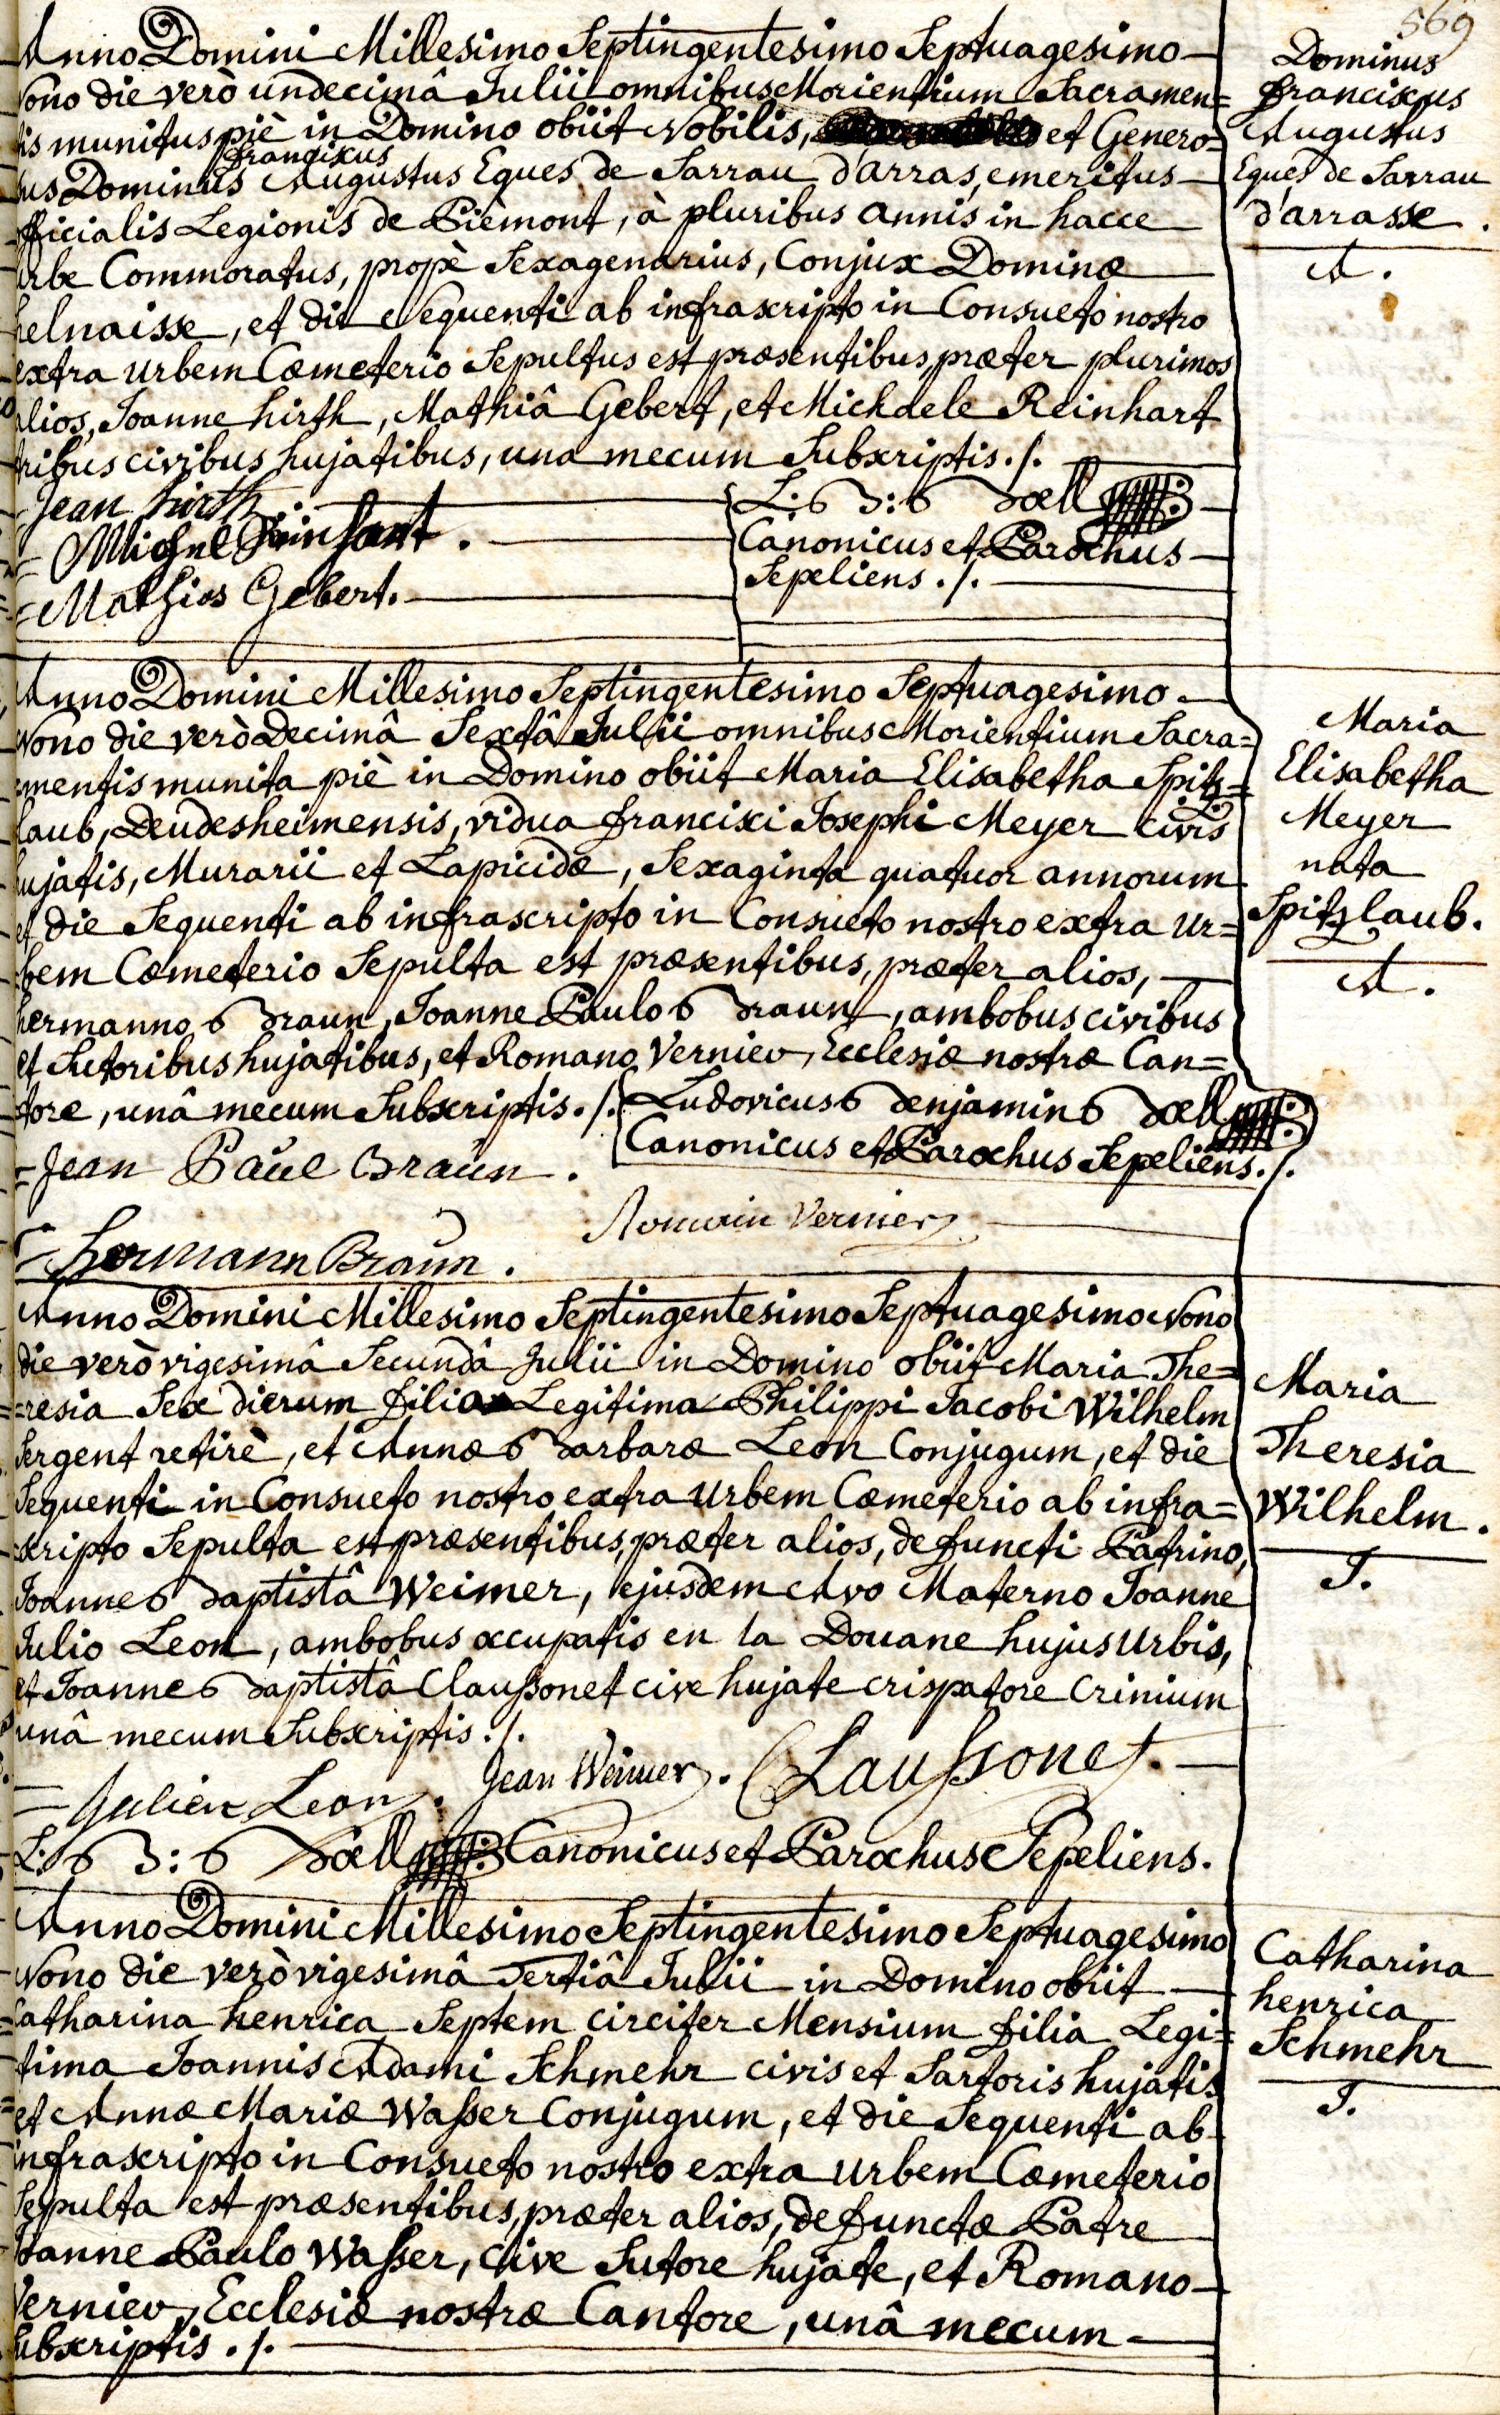 569
Anno Domini Millesimo Septingentesimo Septuagesimo
Nono die verò undecimâ Julii omnibus Morientium Sacramen=
tis munitus piè in Domino obiit Nobilis, et Genero=
franciscus
sus Dominus Augustus Eques de Sarrau d'arras, emeritus
officialis Legionis de Pièmont, à pluribus annis in hacce
urbe Commoratus, propè Sexagenarius, Conjux Dominæ
helnaisse, et die sequenti ab infrascripto in Consueto nostro
extra urbem Cœmeterio Sepultus est præsentibus, præter plurimos
alios, Joanne hirth, Mathiâ Gebert, et Michaele Reinhart
tribus civibus hujatibus, una mecum Subscriptis ./.
Dominus
franciscus
Augustus
Eques de Sarrau
d'arrasse.
A.
Jean hirth
Michel Reinhart.
Mathias Gebert.
L: B: Böell
Canonicus et Parochus
Sepeliens ./.
Anno Domini Millesimo Septingentesimo Septuagesimo
Nono die verò Decimâ Sextâ Julii omnibus Morientium Sacra=
mentis munita piè in Domino obiit Maria Elisabetha Spitz=
laub, Deudesheimensis, vidua francisci Josephi Meyer civis
hujatis, Murarii et Lapicidæ, Sexaginta quatuor annorum
et die Sequenti ab infrascripto in Consueto nostro extra ur=
bem Cœmeterio Sepulta est præsentibus, præter alios,
hermanno Braun, Joanne Paulo Braun, ambobus civibus
et Sutoribus hujatibus, et Romano Vernier, Ecclesiæ nostræ Can=
tore, unâ mecum Subscriptis ./.
Ludovicus Benjamin Böell
Canonicus et Parochus Sepeliens ./.
Maria
Elisabetha
Meyer
nata
Spitzlaub.
A.
Jean Paul Braun.
Romain Vernier
hermann Braun.
Anno Domini Millesimo Septingentesimo Septuagesimo Nono
die verò vigesimâ Secundâ Julii in Domino obiit Maria The=
=resia Sex dierum filia Legitima Philippi Jacobi Wilhelm
Sergent retirè, et Annæ Barbaræ Leon Conjugum, et die
Sequenti in Consueto nostro extra urbem Cœmeterio ab infra=
scripto Sepulta est præsentibus, præter alios, defuncti Patrino,
Joanne Baptistâ Weimer, ejusdem Avo Materno Joanne
Julio Leon, ambobus occupatis en la Douane hujus urbis,
et Joanne Baptistâ Claußonet cive hujate crispatore Crinium
unâ mecum Subscriptis ./.
Maria
Theresia
Wilhelm.
J.
Julien Leon. Jean Weimer. Claußonet.
L: B: Böell Canonicus et Parochus Sepeliens.
Anno Domini Millesimo Septingentesimo Septuagesimo
Nono die verò vigesimâ Tertiâ Julii in Domino obiit
Catharina henrica Septem circiter Mensium filia Legi=
tima Joannis Adami Schmehr civis et Sartoris hujatis
et Annæ Mariæ Waßer Conjugum, et die Sequenti ab
infrascripto in Consueto nostro extra urbem Cœmeterio
Sepulta est præsentibus, præter alios, defunctæ Patre
Joanne Paulo Waßer, cive Sutore hujate, et Romano
Vernier, Ecclesiæ nostræ Cantore, unâ mecum
Subscriptis ./.
Catharina
henrica
Schmehr
J.